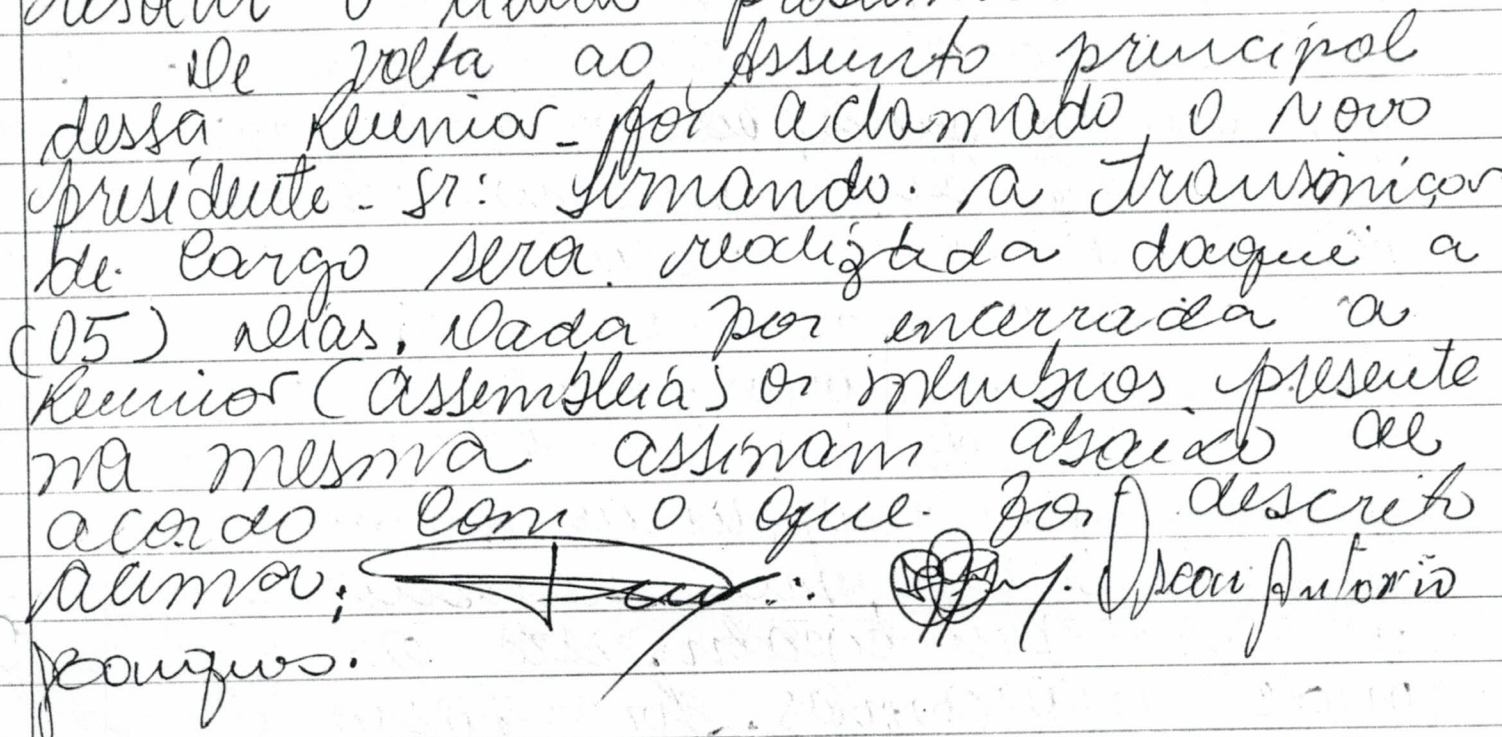 De volta ao Assunto principal
dessa Reunião foi aclamado o novo
presidente - Sr: Armando. a transiniçao
de Cargo sera realizada daqui a
(05) dias. Dada por encerrada a
Reunião (assembleia) os membros presente
na mesma assinam abaixo de
acordo com o que foi descrito
acima;
Oscar Antonio